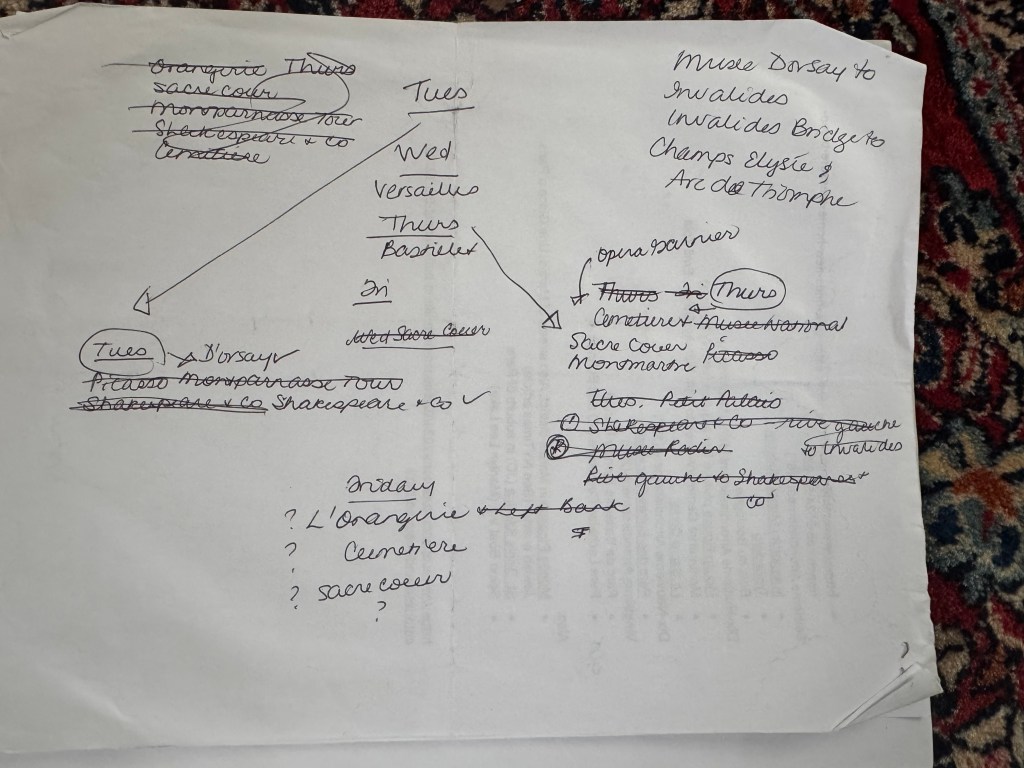 Orangerie Thurs
Sacre Couer
Monsparnasse Tour
Shakespeare + Co
Cemetiere
Tues
Wed
Versailles
Thurs
Fri
Wed Sacre Couer
Musee Dorsay to
Invalides
Invalides Bridge to
Champs Elysée &
Arc de Thiomphe
Opera Garnier
Thurs Fri Thurs
Cemetiere + Musee National
Picasso
Sacre Couer
Monmartre
Thurs. Petit Palais
1 Shakespeare + Co rive gauche
to Invalides
2 Musee Rodin
Rive gauche to Shakespeare +
Co
Tues D'orsay ✓
Picasso Monsparnasse Tour
Shakespeare + Co Shakespeare + Co ✓
Friday
? L'Orangerie + Left Bank
? Cemetiere
? Sacre Coeur
?